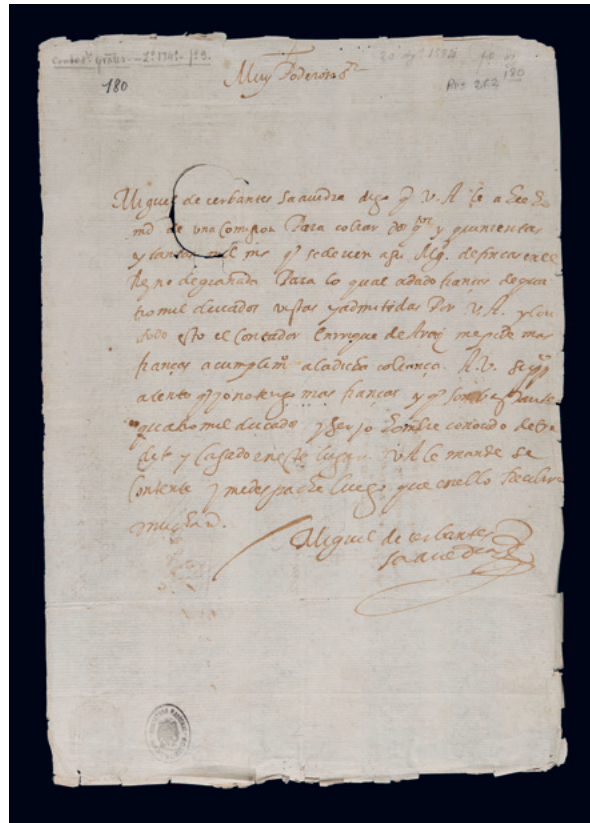 180
Muy Poderoso Sr
180
Miguel de cerbantes Saavedra digo q V. A. le a hecho
md de una Comision Para cobrar dos qos y quinientas
y tantas mil ms q se deven a su Mg. de fincas en el
Reyno de granada Para lo qual a dado fianças de qua
tro mil ducados vistas y admitidas Por V. A. y con
todo esto el Contador Enrrique de Arayz me pide mas
fianças a cumplimto a la dicha cobrança. A. V.
atento q yo no tengo mas fianças y q son bastante
quatro mil ducados y ser yo hombre conocido de
y casado en este lugar V A le mande se
Contente y me despache luego que en ello Recebire
mucha
Miguel de cerbantes
Saavedra